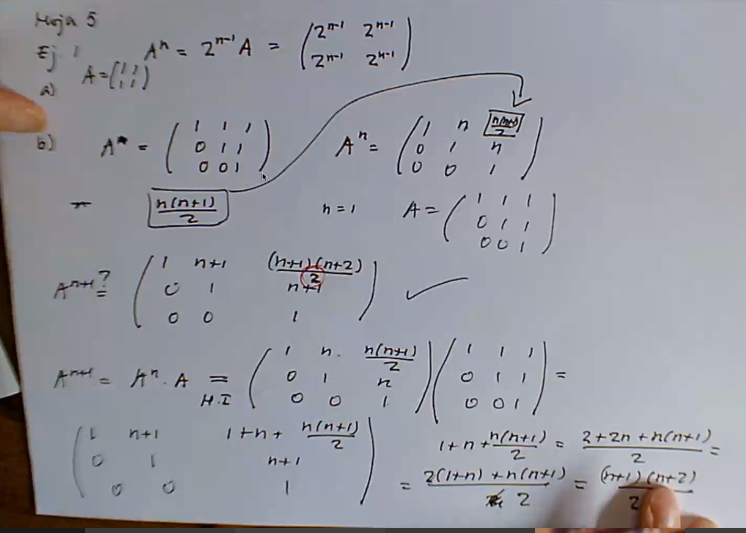 Hoja 5
Ej. 1 Aⁿ = 2ⁿ⁻¹ A = ( 2ⁿ⁻¹ 2ⁿ⁻¹
2ⁿ⁻¹ 2ⁿ⁻¹ )
a) A = ( 1 1
1 1 )
b) A = ( 1 1 1
0 1 1
0 0 1 )
Aⁿ = ( 1 n n(n+1)/2
0 1 n
0 0 1 )
n(n+1)/2
n = 1 A = ( 1 1 1
0 1 1
0 0 1 )
Aⁿ⁺¹ =? ( 1 n+1 (n+1)(n+2)/2
0 1 n+1
0 0 1 ) ✓
Aⁿ⁺¹ = Aⁿ · A = H.I ( 1 n n(n+1)/2
0 1 n
0 0 1 ) ( 1 1 1
0 1 1
0 0 1 ) =
( 1 n+1 1+n+ n(n+1)/2
0 1 n+1
0 0 1 )
1+n+ n(n+1)/2 = 2+2n+n(n+1)/2 =
= 2(1+n)+n(n+1)/2 = (n+1)(n+2)/2